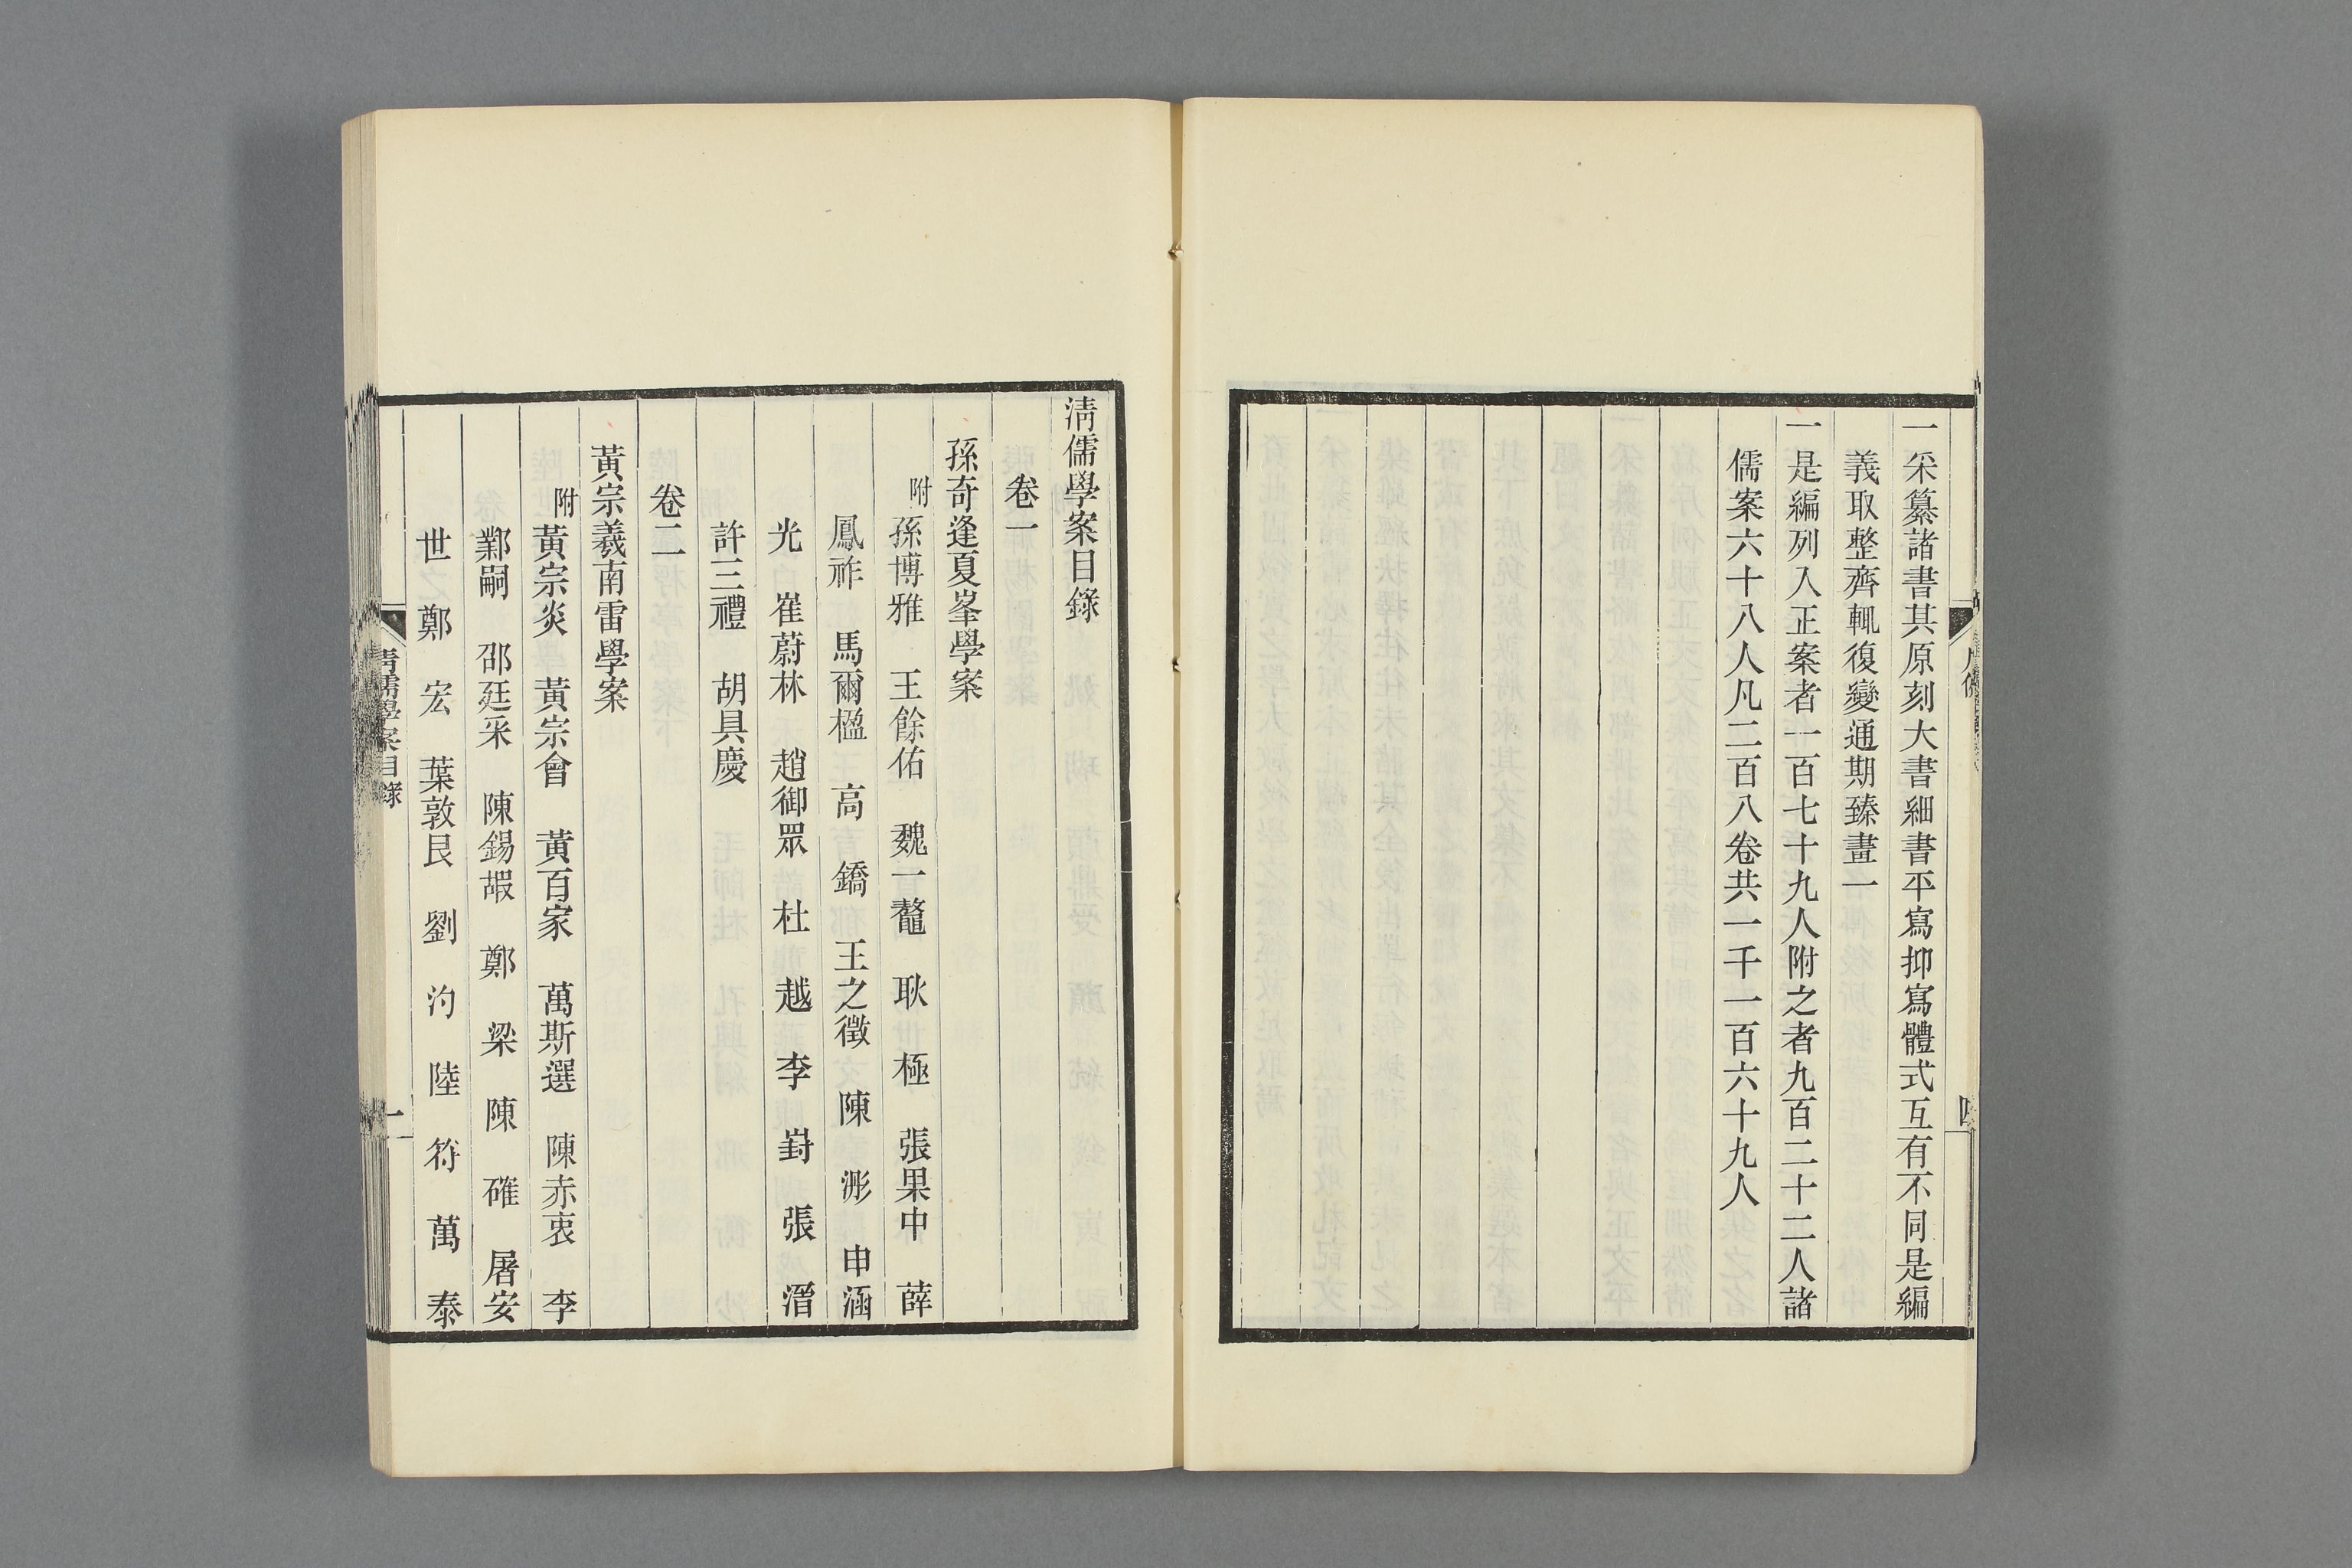 一采纂諸書其原刻大書細書平寫抑寫體式互有不同是編
義取整齊輒復變通期臻畫一
一是編列入正案者一百七十九人附之者九百二十二人諸
儒案六十八人凡二百八卷共一千一百六十九人
清儒學案目錄
卷一
孫奇逢夏峯學案
附孫博雅 王餘佑 魏一鼇 耿 極 張果中 薛
鳳祚 馬爾楹 高 鐈 王之徵 陳 浵 申涵
光 崔蔚林 趙御眾 杜 越 李 崶 張 潛
許三禮 胡具慶
卷二
黃宗羲南雷學案
附黃宗炎 黃宗會 黃百家 萬斯選 陳赤衷 李
鄴嗣 邵廷采 陳錫嘏 鄭 梁 陳 確 屠安
世 鄭 宏 葉敦艮 劉 汋 陸 符 萬 泰
清儒學案目錄
一